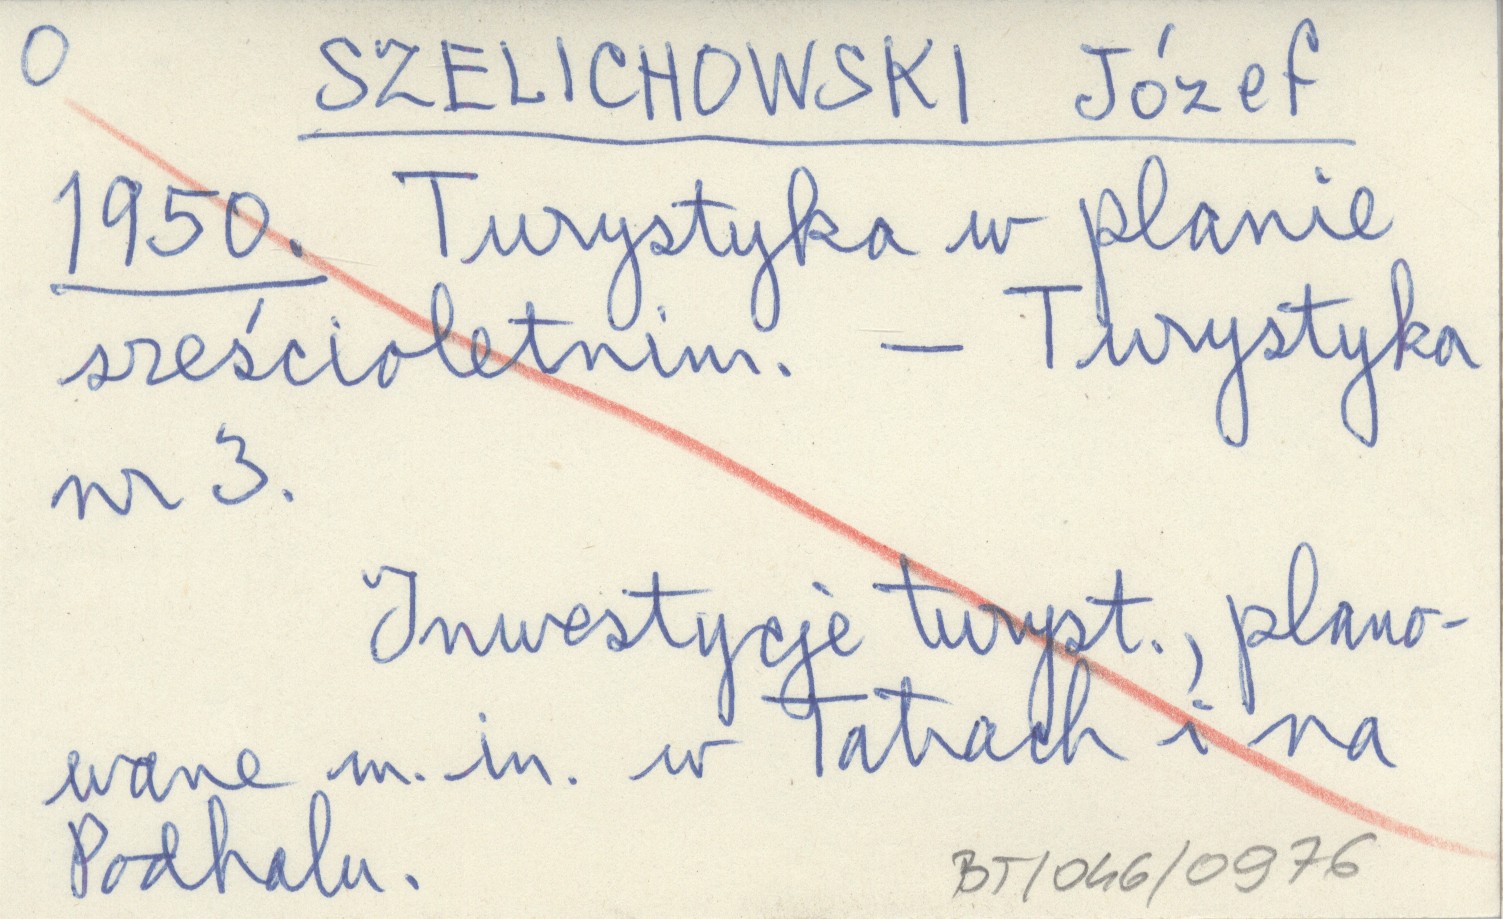 O SZELICHOWSKI Józef
1950. Turystyka w planie
sześcioletnim. — Turystyka
nr 3.
Inwestycje turyst., plano-
wane m. in. w Tatrach i na
Podhalu.
BT/046/0976